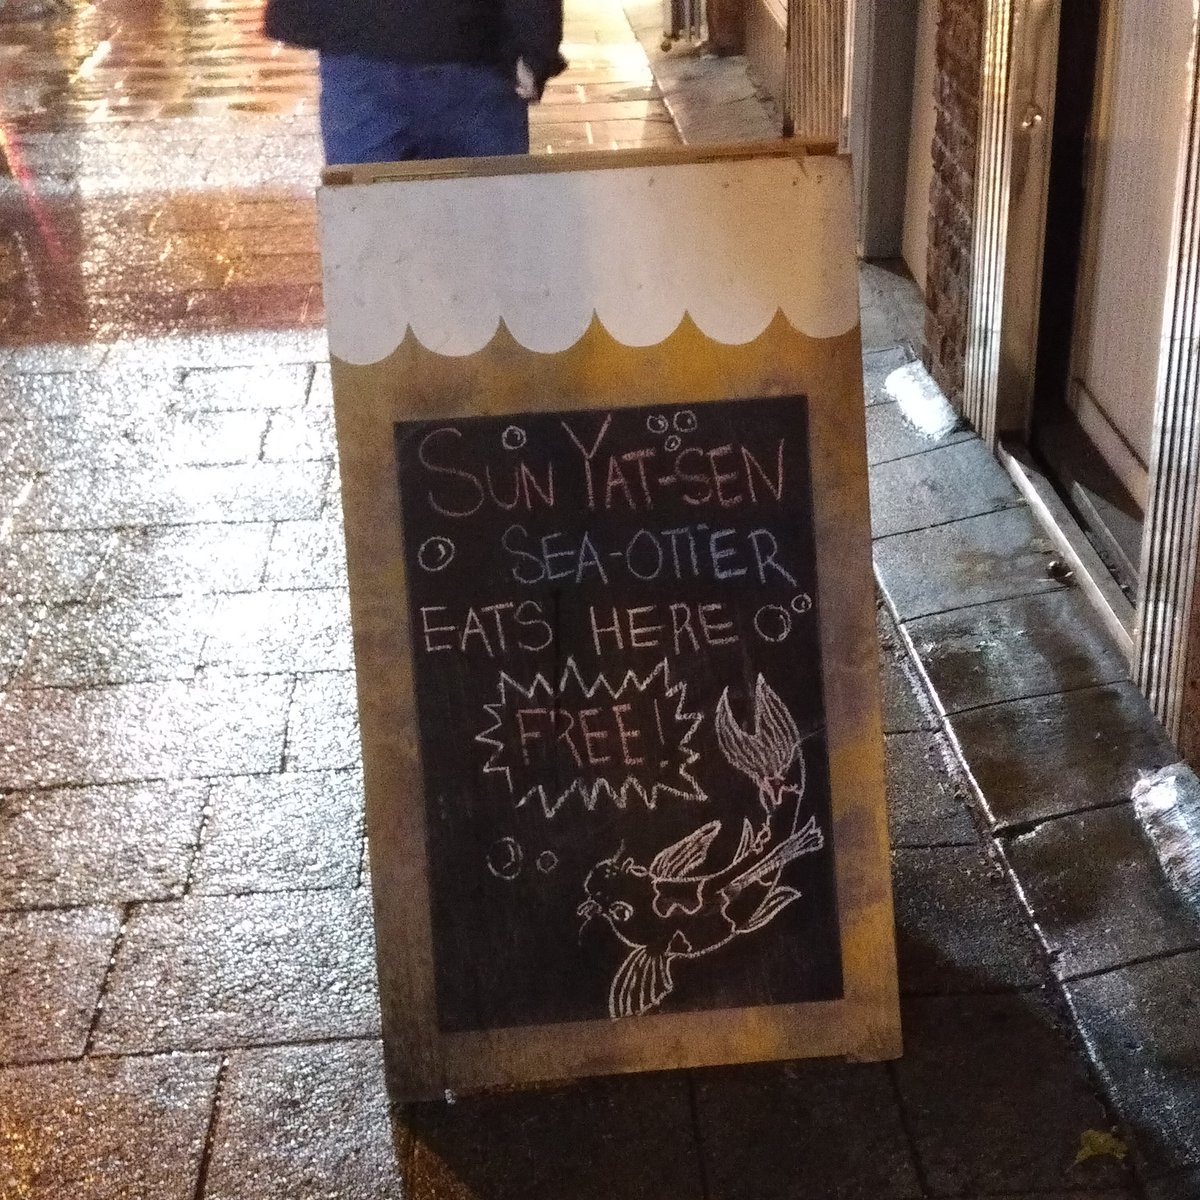 SUN YAT-SEN
SEA-OTTER
EATS HERE
FREE!